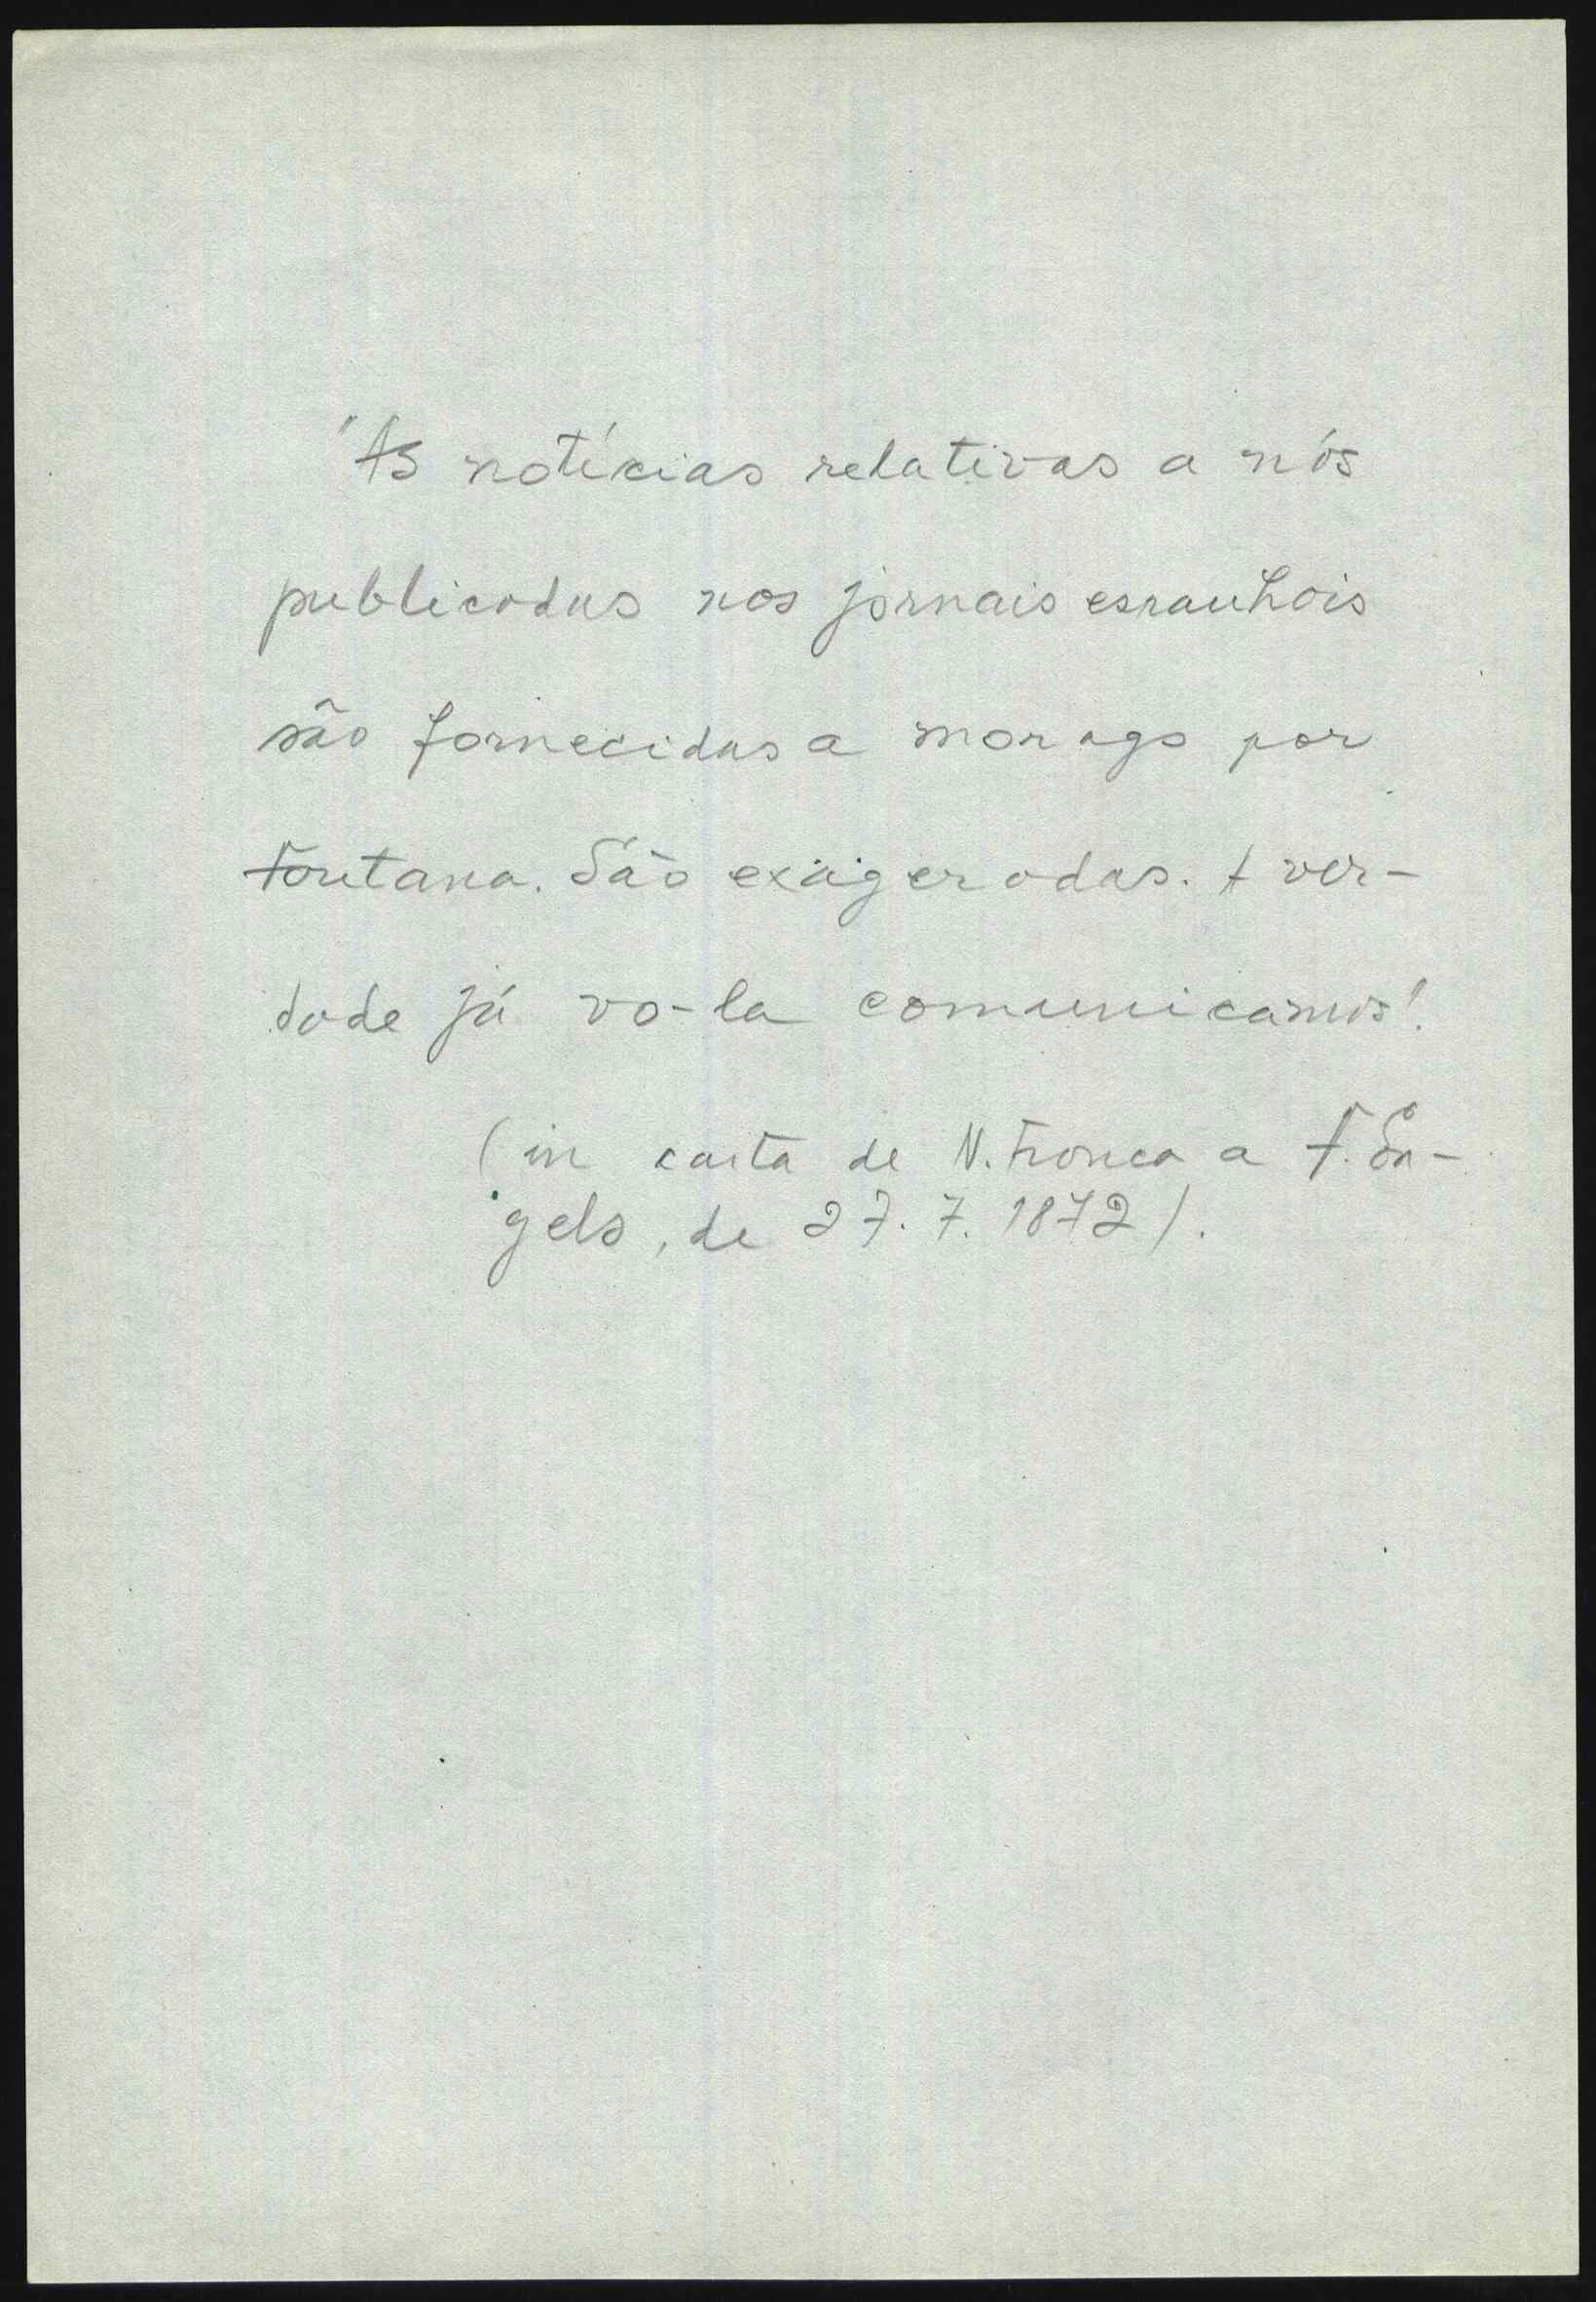 "As notícias relativas a nós
publicadas nos jornais espanhois
são fornecidas a morago por
Fontana. São exageradas. A ver-
dade já vo-la comunicamos".
(in carta de N. França a F. En-
gels, de 27.7.1872).